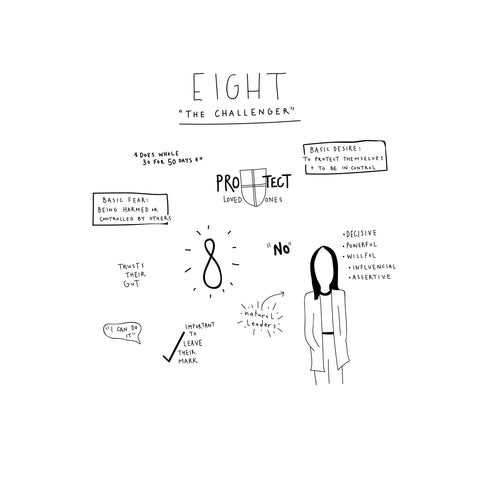 EIGHT
"THE CHALLENGER"
*DOES WHOLE
30 FOR 50 DAYS **
BASIC DESIRE:
TO PROTECT THEMSELVES
+ TO BE IN CONTROL
PROTECT
LOVED ONES
BASIC FEAR:
BEING HARMED OR
CONTROLLED BY OTHERS
8
"No"
• DECISIVE
• POWERFUL
• WILLFUL
• INFLUENCIAL
• ASSERTIVE
TRUSTS
THEIR
GUT
natural
leaders
"I CAN DO
IT"
IMPORTANT
TO
LEAVE
THEIR
MARK